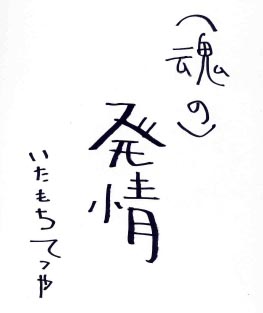 (魂の)
発情
いたもちてつや